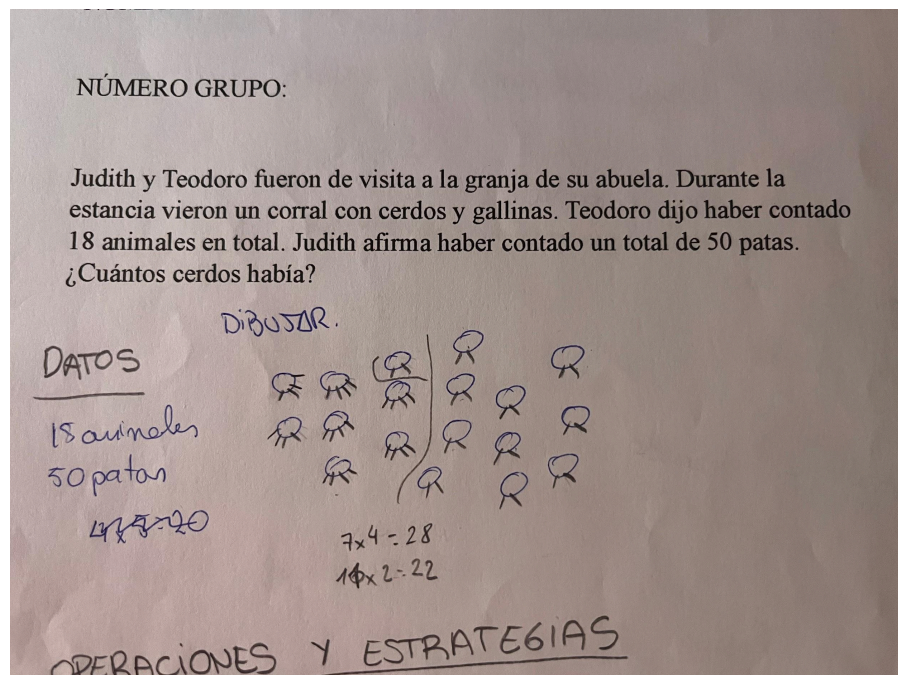 NÚMERO GRUPO:
Judith y Teodoro fueron de visita a la granja de su abuela. Durante la
estancia vieron un corral con cerdos y gallinas. Teodoro dijo haber contado
18 animales en total. Judith afirma haber contado un total de 50 patas.
¿Cuántos cerdos había?
DiBUJAR.
DATOS
18 animales
50 patas
7x4=28
x2=22
OPERACiONES Y ESTRATEGIAS